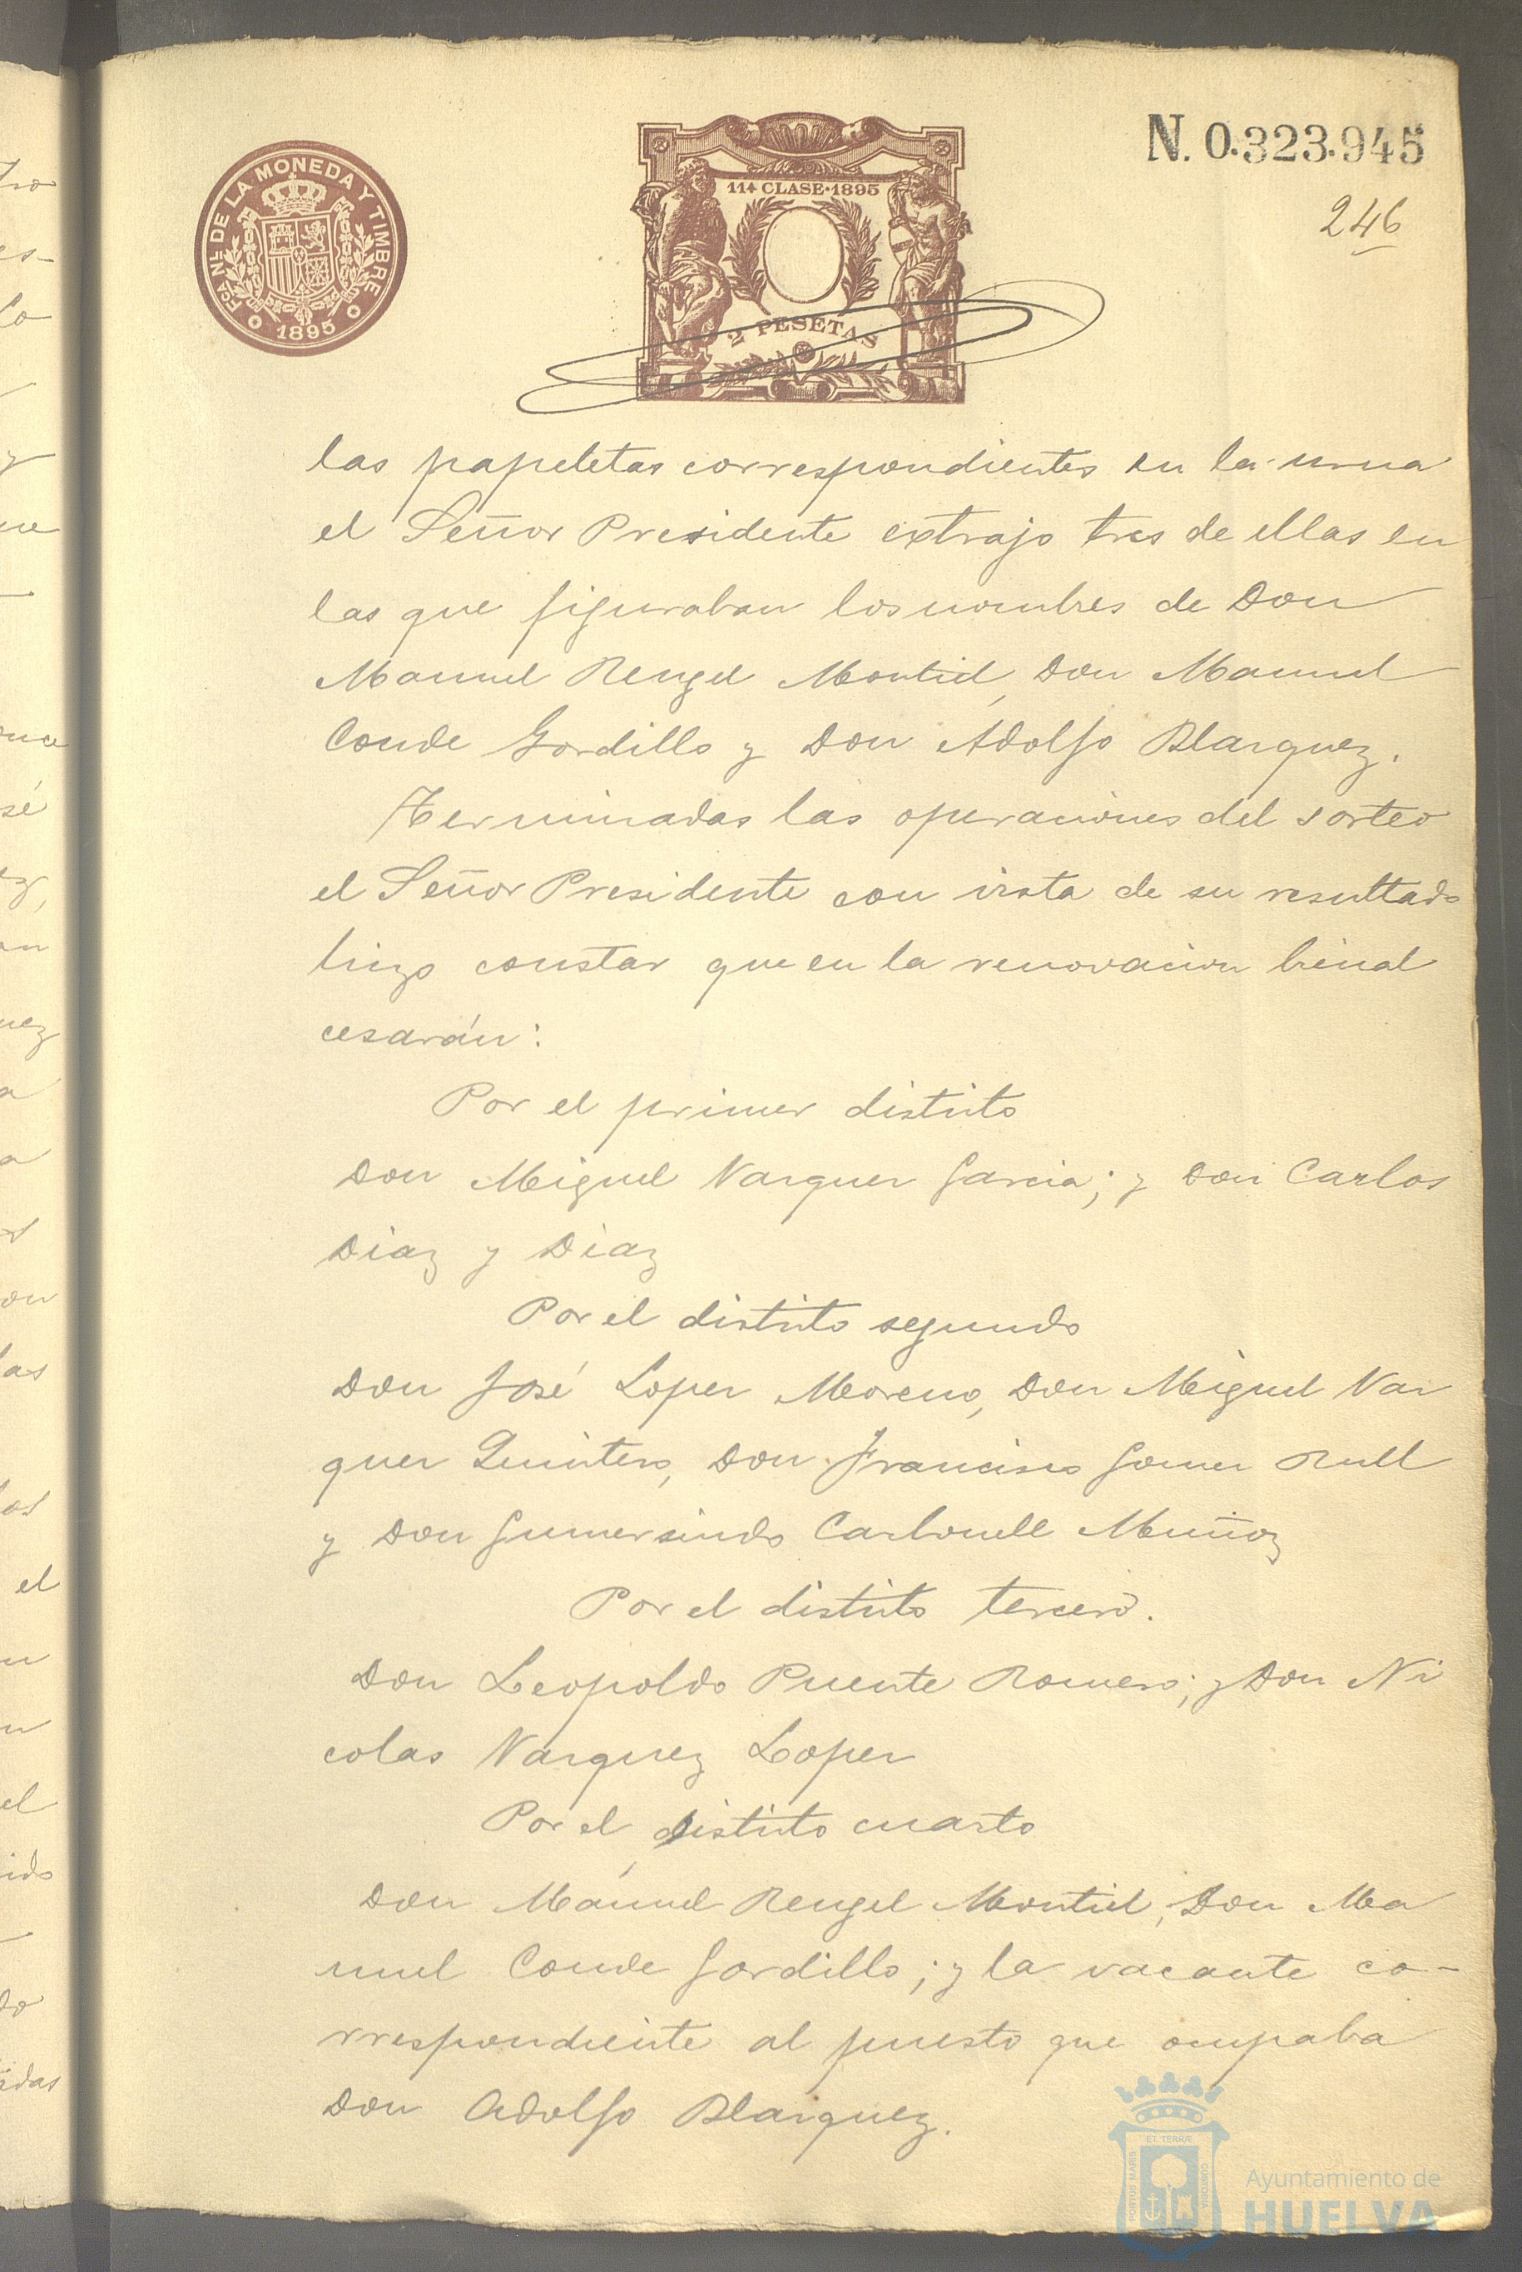 N. 0.323.945
246
FCA. NL. DE LA MONEDA Y TIMBRE
1895
11ª CLASE·1895
2 PESETAS
las papeletas correspondientes en la urna
el Señor Presidente extrajo tres de ellas en
las que figuraban los nombres de Don
Manuel Rengel Montiel, Don Manuel
Conde Gordillo y Don Adolfo Blarquez.
Terminadas las operaciones del sorteo
el Señor Presidente con vista de su resultado
hizo constar que en la renovacion bienal
cesarán:
Por el primer distrito
Don Miguel Varquer Garcia; y Don Carlos
Diaz y Diaz
Por el distrito segundo
Don José Loper Moreno, Don Miguel Var
quer Quintero, Don Francisco Gomer Rull
y Don Gumersindo Carbonell Muñoz
Por el distrito tercero.
Don Leopoldo Puente Romero; y Don Ni
colas Varquez Loper
Por el distrito cuarto
Don Manuel Rengel Montiel, Don Ma
nuel Conde Gordillo; y la vacante co-
rrespondiente al puesto que ocupaba
Don Adolfo Blarquez.
PORTUS MARIS
ET TERRÆ
CUSTODIA
Ayuntamiento de
HUELVA